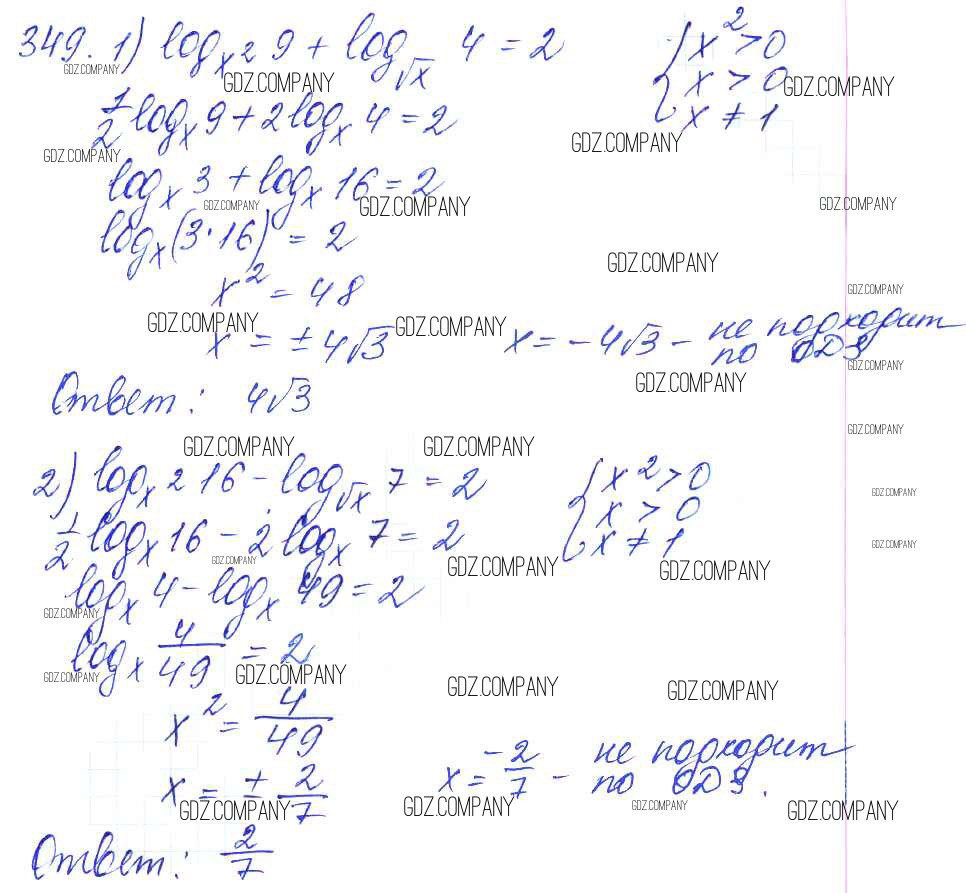 349. 1) log_{x^2} 9 + log_{√x} 4 = 2 { x^2 > 0
GDZ.COMPANY GDZ.COMPANY x > 0 GDZ.COMPANY
1/2 log_x 9 + 2 log_x 4 = 2 x ≠ 1
GDZ.COMPANY GDZ.COMPANY
log_x 3 + log_x 16 = 2
GDZ.COMPANY GDZ.COMPANY GDZ.COMPANY
log_x (3 · 16) = 2
GDZ.COMPANY
x^2 = 48 GDZ.COMPANY
GDZ.COMPANY GDZ.COMPANY
x = ± 4√3 x = - 4√3 - не подходит
по ОДЗ
GDZ.COMPANY GDZ.COMPANY
Ответ: 4√3
GDZ.COMPANY GDZ.COMPANY GDZ.COMPANY
2) log_{x^2} 16 - log_{√x} 7 = 2 { x^2 > 0
GDZ.COMPANY
x > 0
1/2 log_x 16 - 2 log_x 7 = 2 x ≠ 1
GDZ.COMPANY
GDZ.COMPANY GDZ.COMPANY GDZ.COMPANY
log_x 4 - log_x 49 = 2
GDZ.COMPANY
log_x 4/49 = 2
GDZ.COMPANY GDZ.COMPANY GDZ.COMPANY GDZ.COMPANY
x^2 = 4/49
x = ± 2/7 x = -2/7 - не подходит
по ОДЗ.
GDZ.COMPANY GDZ.COMPANY GDZ.COMPANY GDZ.COMPANY
Ответ: 2/7